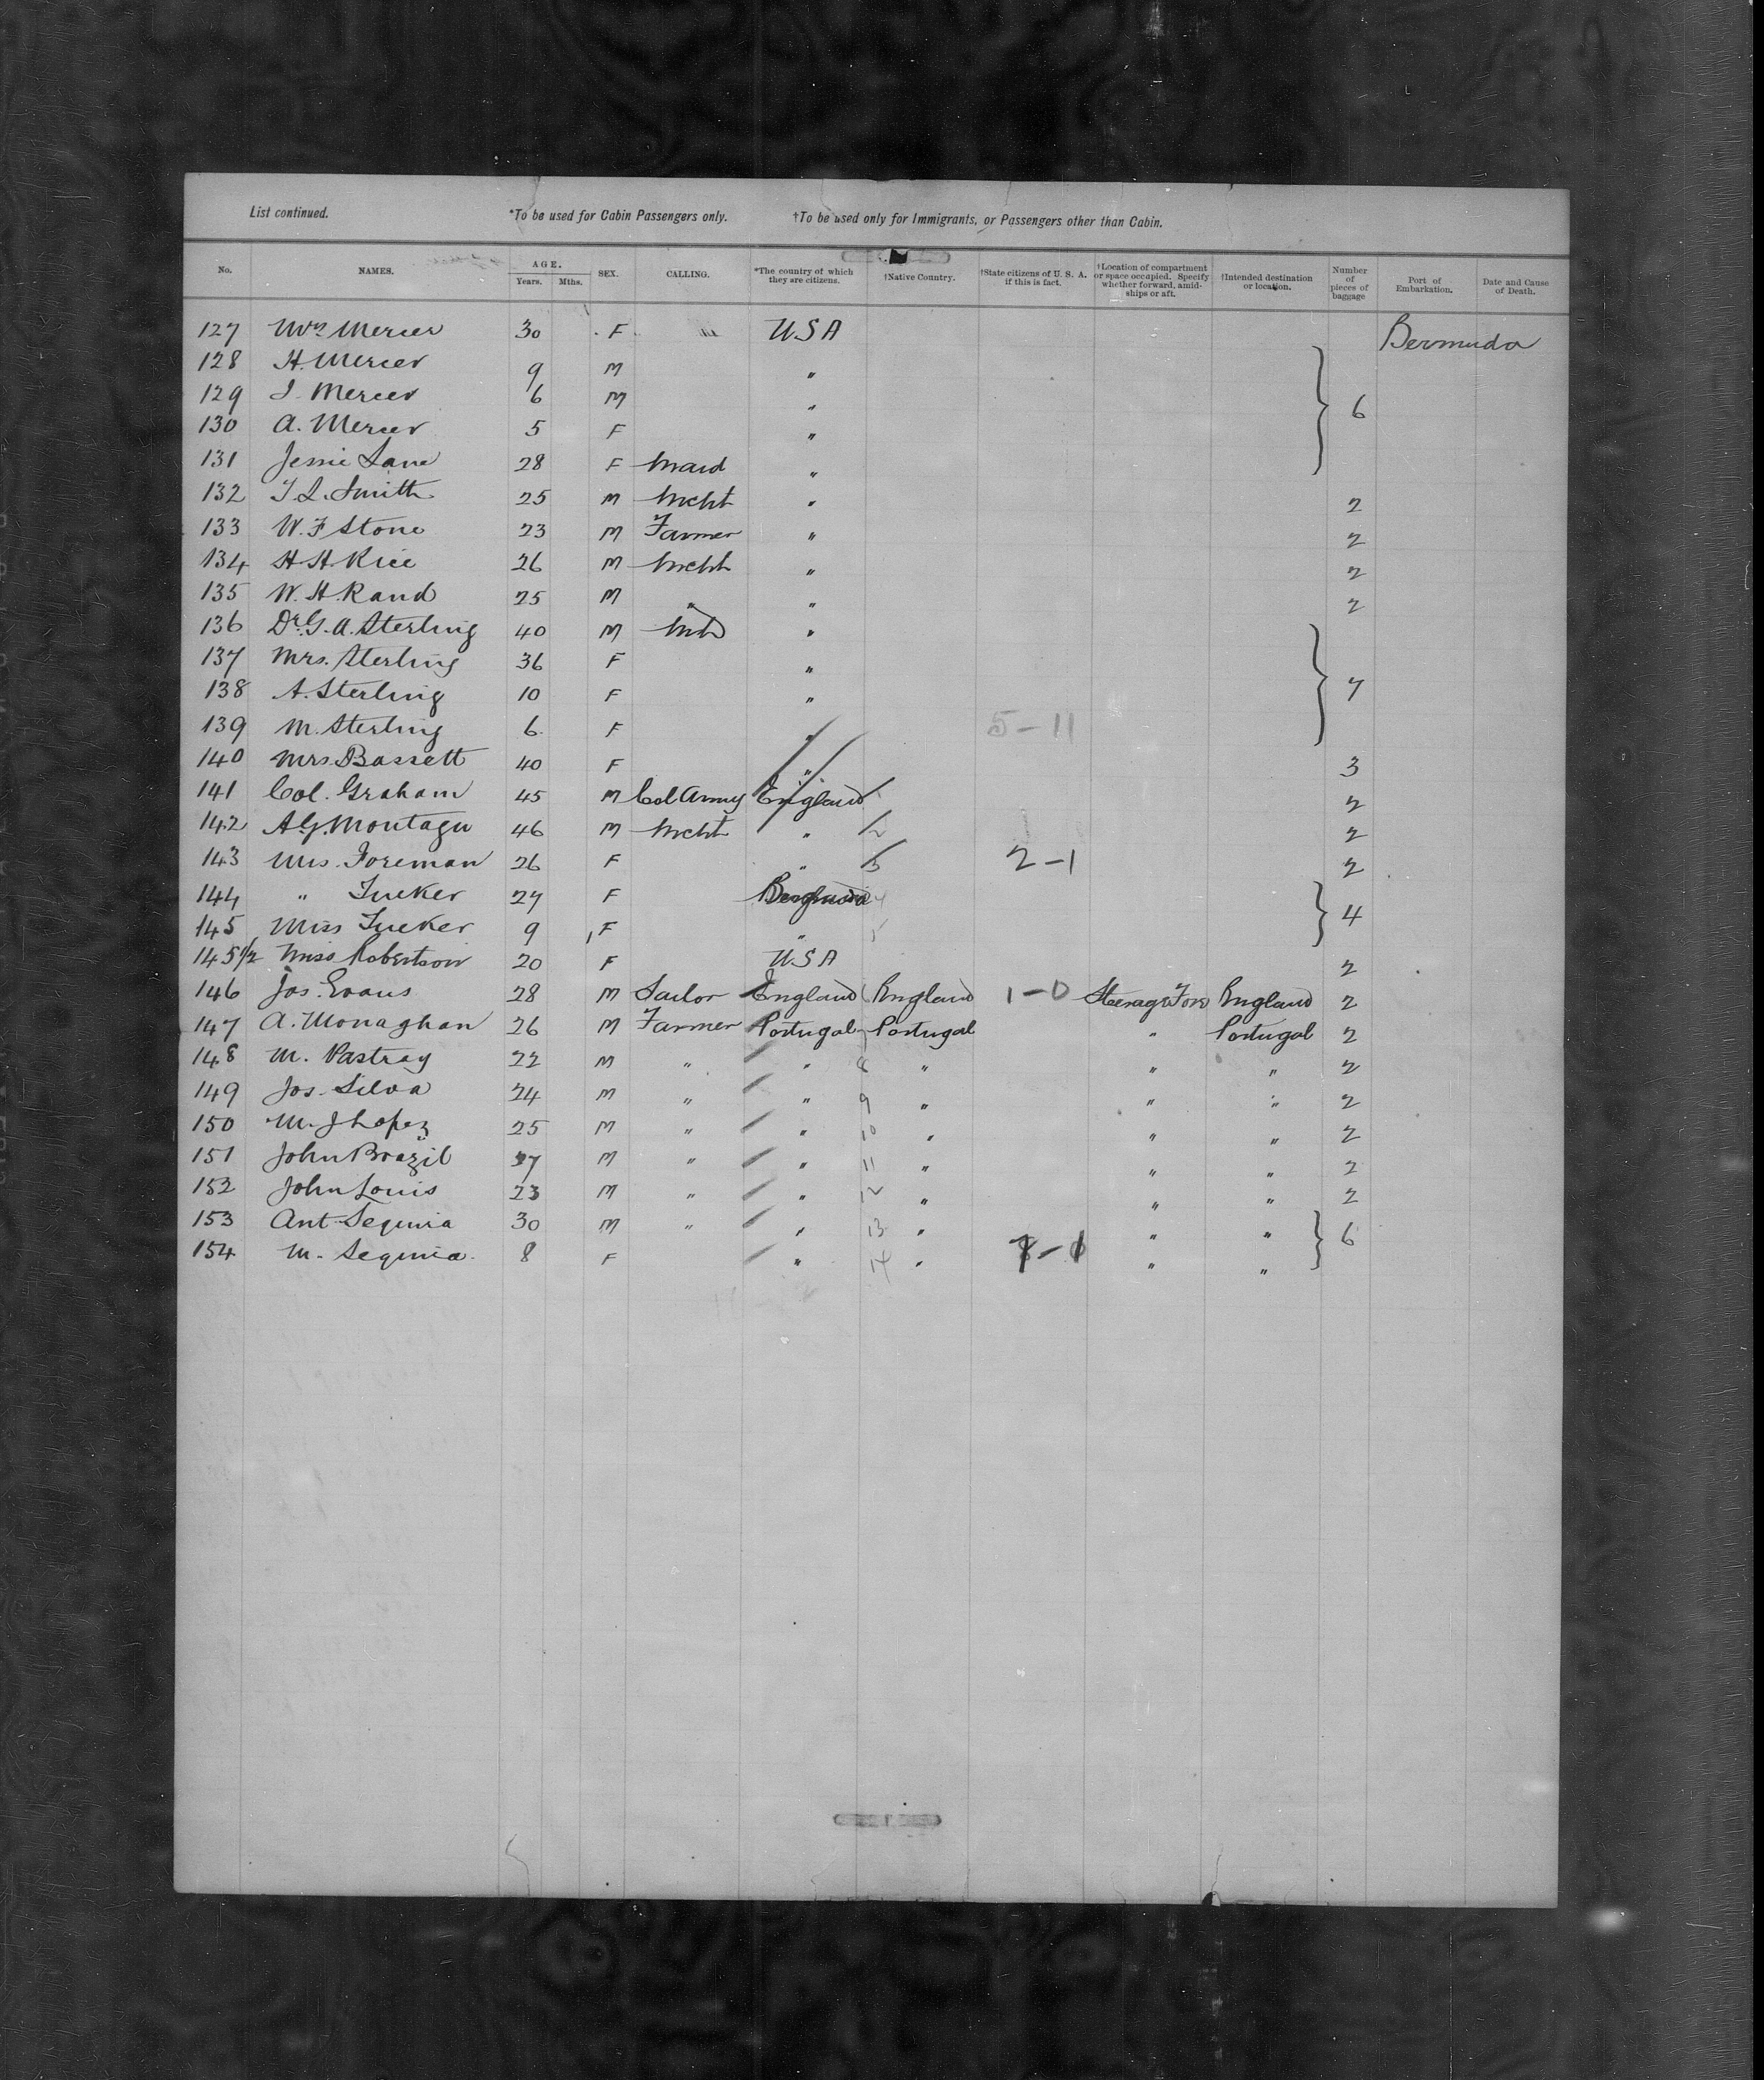 List continued. *To be used for Cabin Passengers only. †To be used only for Immigrants, or Passengers other than Cabin.
No. NAMES. AGE. Years. Mths. SEX. CALLING. *The country of which they are citizens. †Native Country. †State citizens of U. S. A. if this is fact. †Location of compartment or space occupied. Specify whether forward, amidships or aft. †Intended destination or location. Number of pieces of baggage Port of Embarkation. Date and Cause of Death.
127 Mrs Mercer 30 F " USA Bermuda
128 H. Mercer 9 M "
129 J. Mercer 6 M " 6
130 A. Mercer 5 F "
131 Jessie Lane 28 F Maid "
132 T L. Smith 25 M Mcht " 2
133 W. F Stone 23 M Farmer " 2
134 H H Rice 26 M Mcht " 2
135 W. H. Rand 25 M " " 2
136 Dr. G. A. Sterling 40 M MD "
137 Mrs. Sterling 36 F "
138 A. Sterling 10 F " 7
139 M. Sterling 6 F " 5-11
140 Mrs. Bassett 40 F " 3
141 Col. Graham 45 M Col Army England 2
142 A. G. Montagu 46 M Mcht " 2 2
143 Mrs. Foreman 26 F " 3 2-1 2
144 " Tucker 27 F Bermuda 4
145 Miss Tucker 9 F " 5 4
145 1/2 Miss Robertson 20 F USA 2
146 Jos. Evans 28 M Sailor England England 1-0 Steerage Fow England 2
147 A. Monaghan 26 M Farmer Portugal 7 Portugal " Portugal 2
148 M. Pastray 22 M " " 8 " " " 2
149 Jos. Silva 24 M " " 9 " " " 2
150 M. J Lopez 25 M " " 10 " " " 2
151 John Brazil 37 M " " 11 " " " 2
152 John Louis 23 M " " 12 " " " 2
153 Ant Sequia 30 M " " 13 " " " 6
154 M. Sequia 8 F " 14 " " "